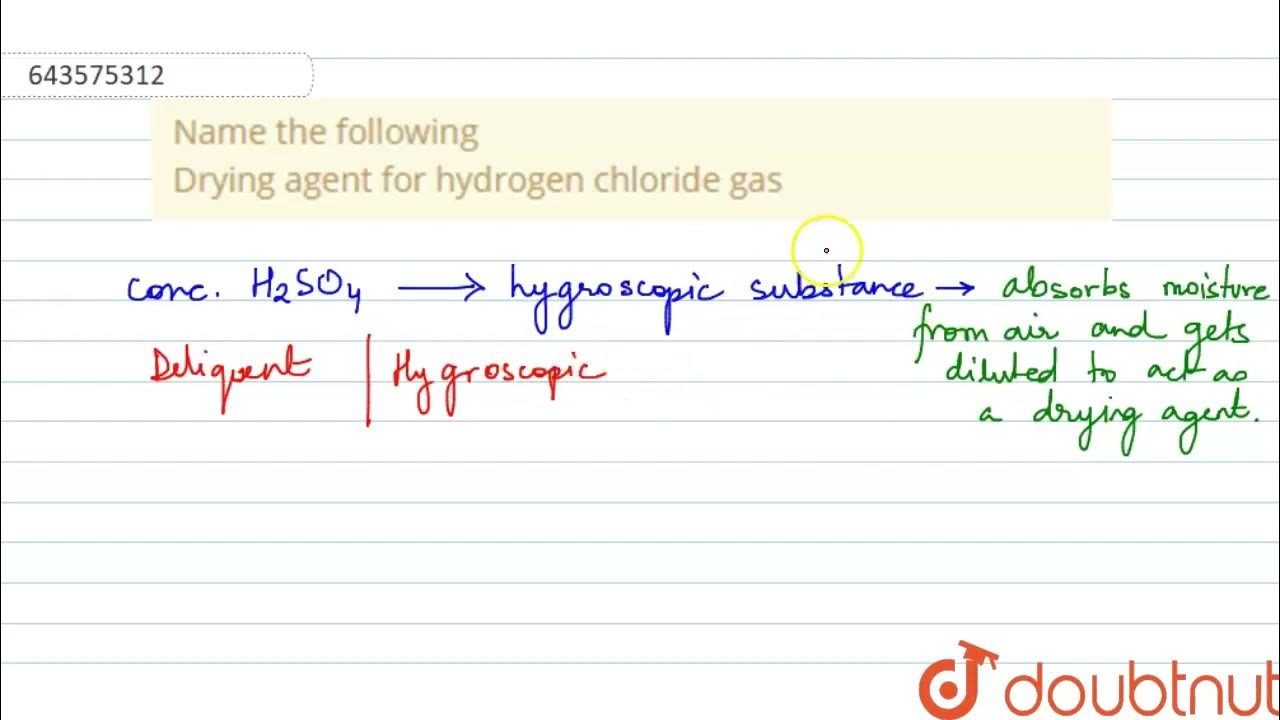 643575312
Name the following
Drying agent for hydrogen chloride gas
conc. H₂SO₄ → hygroscopic substance → absorbs moisture
from air and gets
Deliquent | Hygroscopic
diluted to act as
a drying agent.
doubtnut